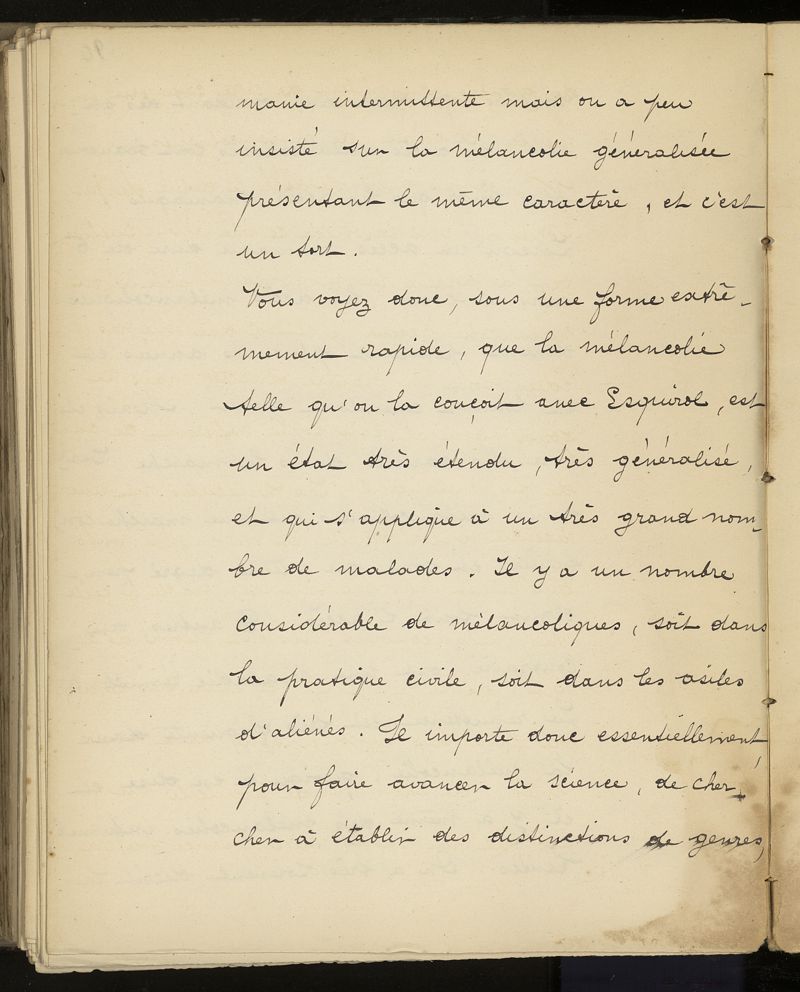 manie intermittente mais on a peu
insisté sur la mélancolie généralisée
présentant le même caractère, et c'est
un tort.
Vous voyez donc, sous une forme extrê-
mement rapide, que la mélancolie
telle qu'on la conçoit avec Esquirol, est
un état très étendu, très généralisé,
et qui s'applique à un très grand nom-
bre de malades. Il y a un nombre
considérable de mélancoliques, soit dans
la pratique civile, soit dans les asiles
d'aliénés. Il importe donc essentiellement,
pour faire avancer la science, de cher-
cher à établir des distinctions de genres,